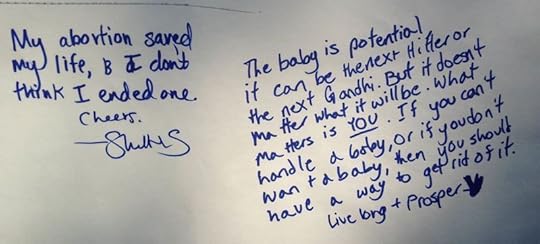 My abortion saved
my life, & I don't
think I ended one.
Cheers.
The baby is potential
it can be the next Hitler or
the next Gandhi. But it doesn't
matter what it will be. What
matters is YOU. If you can't
handle a baby, or if you don't
want a baby, then you should
have a way to get rid of it.
Live long + Prosper